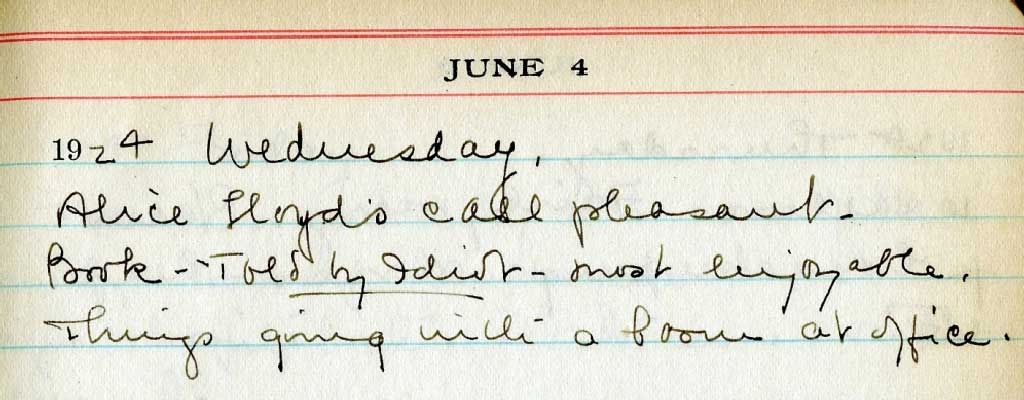 JUNE 4
1924 Wednesday.
Alice Lloyd's call pleasant -
Book - Told by Idiot - most enjoyable.
Things going with a boom at office.